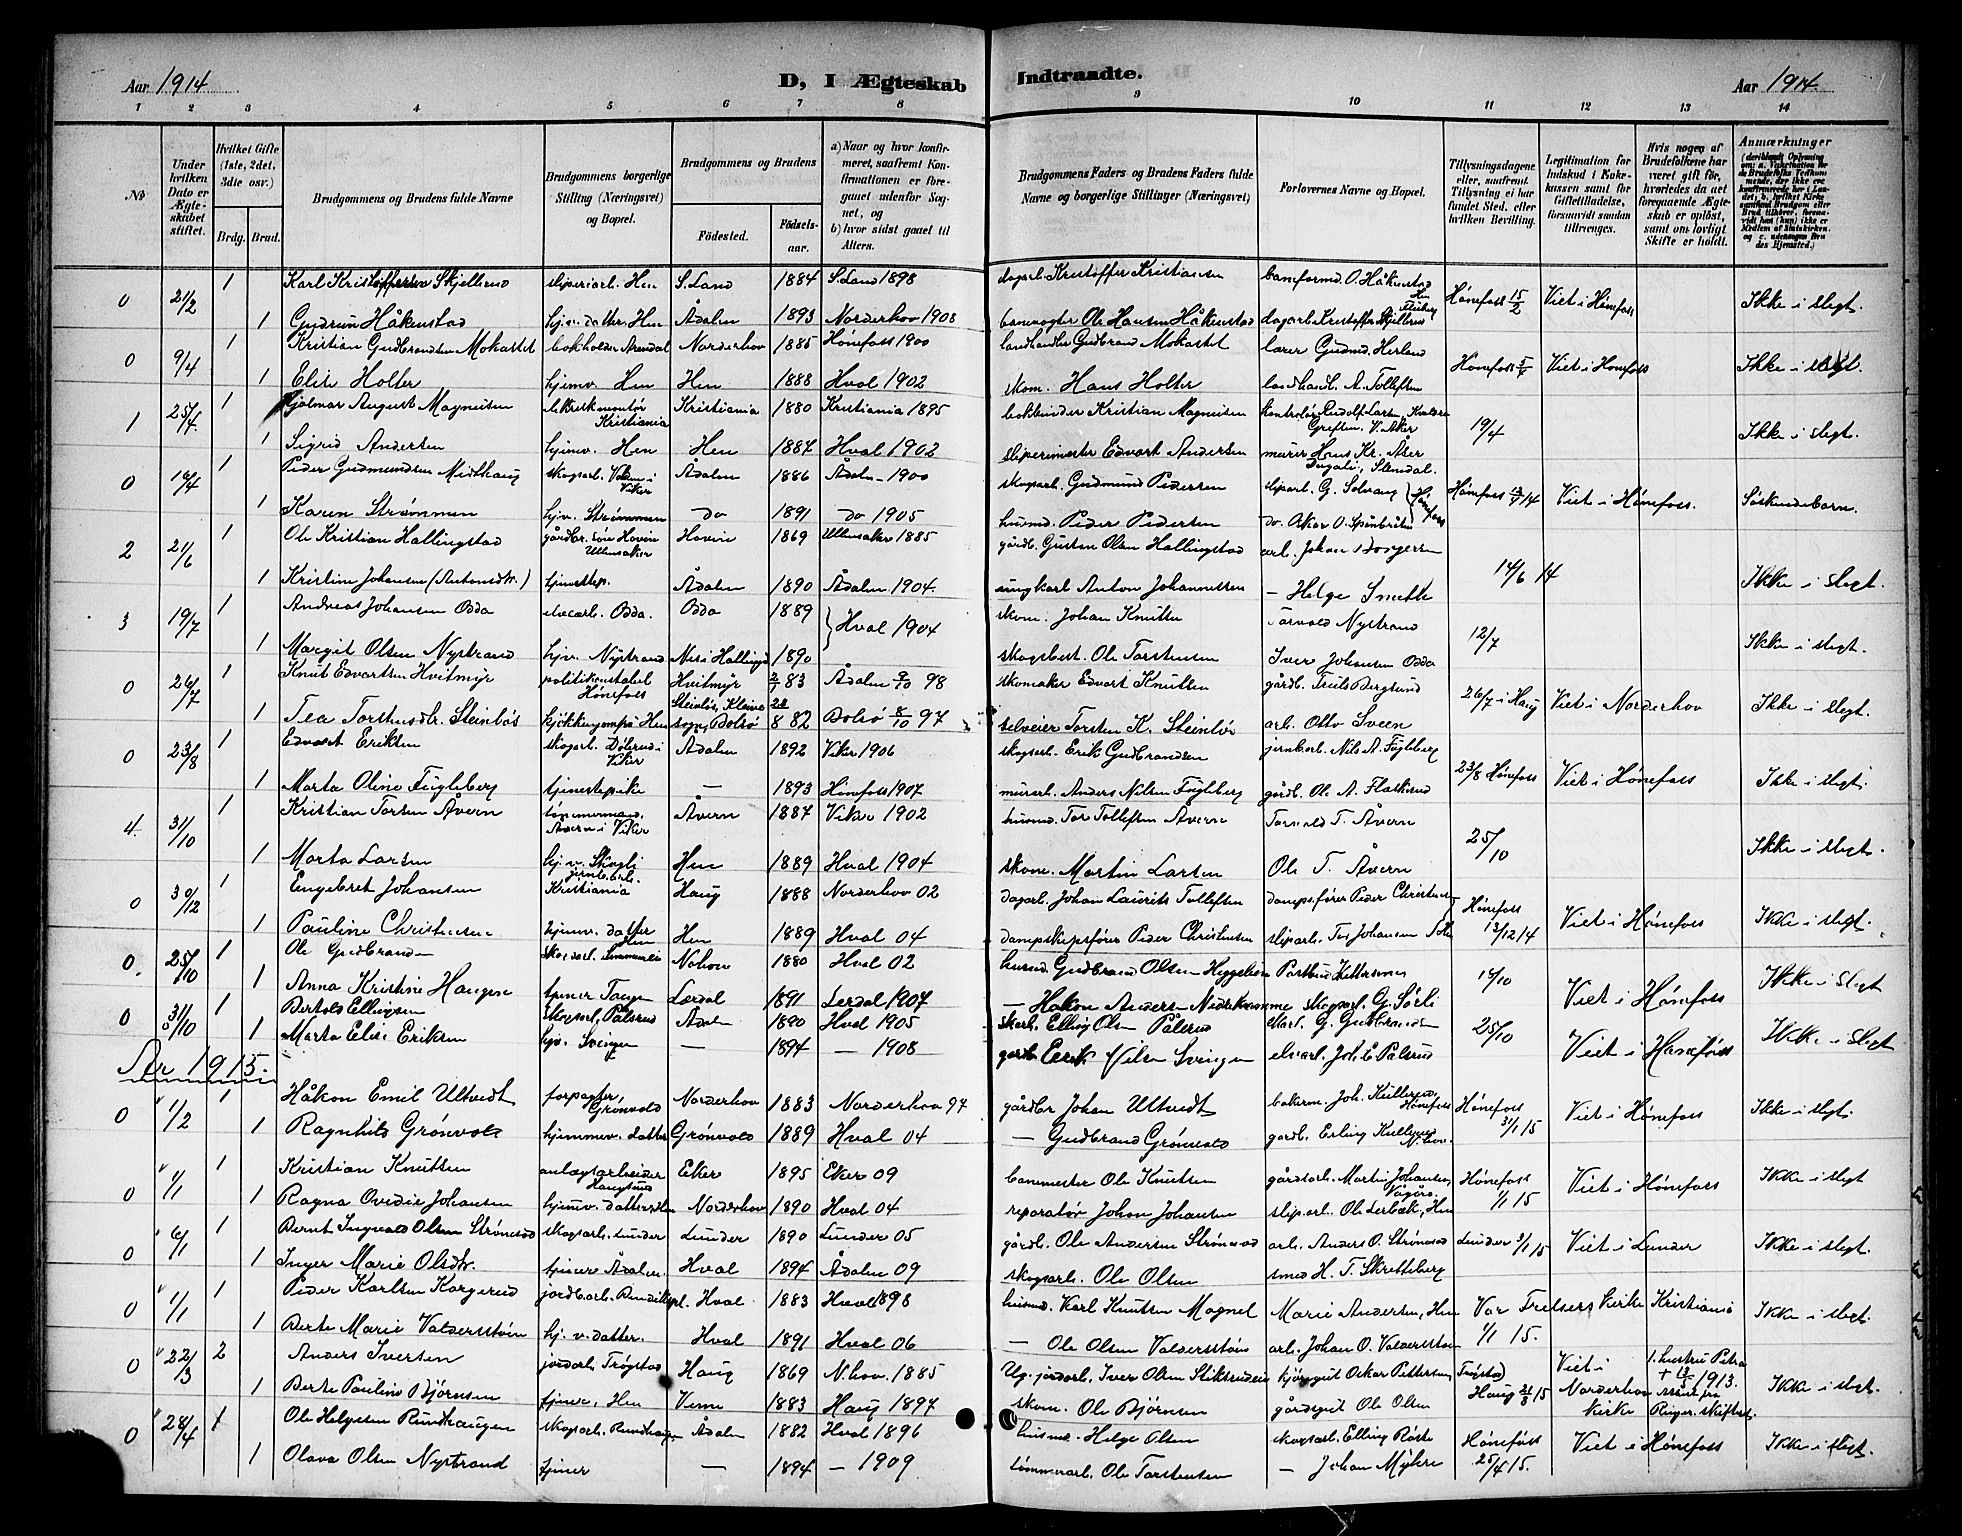 Aar 1914
D, I Ægteskab Indtraadte.
Aar 1914.
1 2 3 4 5 6 7 8 9 10 11 12 13 14
No
Under hvilken Dato er Ægteskabet stiftet.
Hvilket Gifte (1ste, 2det, 3die osv.)
Brdg. Brud.
Brudgommens og Brudens fulde Navne
Brudgommens borgerlige Stilling (Næringsvei) og Bopæl.
Brudgommens og Brudens
Fødested. Fødselsaar.
a) Naar og hvor konfirmeret, saafremt Konfirmationen er foregaaet udenfor Sognet, og
b) hvor sidst gaaet til Alters.
Brudgommens Faders og Brudens Faders fulde Navne og borgerlige Stillinger (Næringsvei)
Forlovernes Navne og Bopæl.
Tillysningsdagene eller, saafremt Tillysning ei har fundet Sted, efter hvilken Bevilling.
Legitimation for Indskud i Enkekassen samt for Giftetilladelse, forsaavidt saadan tiltrænges.
Hvis nogen af Brudefolkene har været gift før, hvorledes da det foregaaende Ægteskab er opløst, samt om lovligt Skifte er holdt.
Anmærkninger
0 21/2 1 Karl Kristoffersen Skjellerud sliperiarb. Hen S. Land 1884 S. Land 1898 dagarb. Kristoffer Kristiansen baneformd. O. Håkenstad Hen Hønefoss 15/2 Viet i Hønefoss Ikke i slegt.
1 Gudrun Håkenstad hj.v. datter Hen Ådalen 1893 Norderhov 1908 banevogter Ole Hansen Håkenstad dagarb. Kristoffer Skjellerud
0 9/4 1 Kristian Gudbrandsen Mokastet bokholder Arendal Norderhov 1885 Hønefoss 1900 landhandler Gudbrand Mokastet lærer Gudmd. Herland Hønefoss 5/4 Viet i Hønefoss Ikke i slegt.
1 Elise Holter hjemv. Hen Hen 1888 Hval 1902 skom. Hans Holter landhandl. A. Tollefsen
1 25/4 1 Hjalmar August Magnussen Kristiania Kristiania 1880 Kristiania 1895 bokbinder Kristian Magnussen kontrolør Rudolf Larsen, Grefsen, V. Aker 19/4 Ikke i slegt.
1 Sigrid Andersen hjemv. Hen Hen 1887 Hval 1902 sliperimester Edvart Andersen murer Hans Kr. Åser
0 18/4 1 Peder Gudmundsen Midthaug skogsarb. Viker Ådalen 1886 Ådalen 1900 skogsarb. Gudmund Pedersen sliparb. G. Solvang Hønefoss 14 Viet i Hønefoss. Søskendebarn.
1 Karen Strømmen hjv. Strømmen do 1891 do 1905 husmd. Peder Pedersen do. Oskar O. Spånbråten Hønefoss
2 21/6 1 Ole Kristian Hallingstad gårdbr. søn Hovin Ullensaker Hovin 1869 Ullensaker 1885 gårdb. Gustav Olsen Hallingstad arb. Johan Borgersen 14/6 14 Ikke i slegt.
1 Kristine Johansen (Antonsdtr.) tjenestep. Ådalen 1890 Ådalen 1904. ungkarl Anton Johannessen – Helge Smette
3 19/7 1 Andreas Johansen Odda elvearb. Odda. Odda 1889 Hval 1904 skom. Johan Knutsen Torvald Nystrand 12/7 Ikke i slegt.
1 Margit Olsen Nystrand hjv. Nystrand Nes i Hallingd. 1890 skogsbest. Ole Torstensen Iver Johansen Odda
0 26/7 1 Knut Edvartsen Hvitmyr politikonstabel Hønefoss Hvitmyr 2/1 83 Ådalen 2/10 98 skomaker Edvart Knutsen gårdb. Truls Berglund 26/7 i Haug Viet i Norderhov Ikke i slegt.
1 Tea Torstensdtr. Steinløs kjøkkenjomfru Hen Steinløs, Kleive sogn, Bolsø 22/8 82 Bolsø 8/10 97 selveier Torsten K. Steinløs arb. Otto Sveen
0 23/8 1 Edvart Eriksen skogarb. Viker Ådalen 1892 Viker 1906 skogsarb. Erik Gudbrandsen jernbarb. Nils A. Fugleberg 23/8 Hønefoss Viet i Hønefoss Ikke i slegt.
1 Marta Oline Fugleberg tjenestepike – 1893 Hønefoss 1907 murarb. Anders Nilsen Fugleberg gårdb. Ole A. Flaskerud
4. 31/10 1 Kristian Torsen Åvern tømmermand, Åvern i Viker Åvern 1887 Viker 1902 husmd. Tor Tollefsen Åvern Torvald T. Åvern 25/10 Ikke i slegt.
1 Marta Larsen hj.v. Skogli Hen 1889 Hval 1904 skom. Martin Larsen Ole T. Åvern
0 30/12 1 Engebret Johansen jernb.arb. Kristiania Haug 1888 Norderhov 02 dagarb. Johan Laurits Tollefsen dampsk.fører Peder Christensen Hønefoss 13/12 14 Viet i Hønefoss Ikke i slegt.
1 Pauline Christensen hjemv. datter Hen Hen 1889 Hval 04 dampskipsfører Peder Christensen sliparb. Johansen
0. 25/10 1 Ole Gudbrandsen skogarb. 1880 Hval 02 husmd. Gudbrand Olsen Heggelien 14/10 Viet i Hønefoss Ikke i slegt
1 Anna Kristine Haugen tjener Lærdal 1891 Lerdal 1907 – Håkon Andersen Nedrekvamme Skogarb. G. Sørli
0 31/10 1 Bertold Ellingsen Skogsarb. Pålsrud Ådalen 1890 Hval 1905 skarb. Elling Olsen Pålsrud G. Gudbrandsen 25/10 Viet i Hønefoss Ikke i slegt
1 Marta Elise Eriksen hjv. Svingen – 1894 – 1908 gardb. Erik Nilsen Svingen elvarb. Joh. E. Pålsrud
År 1915.
0 1/2 1 Håkon Emil Ultvedt forpagter, Grønvold Norderhov 1883 Norderhov 97 gårdbr. Johan Ultvedt bakerm. Joh. Kullerud Hønefoss Hønefoss 31/1 15 Viet i Hønefoss Ikke i slegt.
1 Ragnhild Grønvold hjemmev. datter Grønvold 1889 Hval 04 – Gudbrand Grønvold gardb. Erling Kullerud N.hov.
0 1/1 1 Kristian Knutsen anlægsarbeider Haugsund Eker 1895 Eker 09 banemester Ole Knutsen gårdsarb. Martin Johansen, Hønefoss 1/1 15 Viet i Hønefoss Ikke i slegt
1 Ragna Ovidie Johansen hjemv. datter Norderhov 1890 Hval 04 reparatør Johan Johansen sliparb. Ole Lerbæk, Hen
0 6/1 1 Bernt Ingvald Olsen Strømsod skogsarb. Lunder Lunder 1890 Lunder 05 gårdb. Ole Andersen Strømsod arb. Anders O. Strømsod Lunder 3/1 15 Viet i Lunder Ikke i slegt.
1 Inger Marie Olsdtr. tjener Ådalen. Hval 1894 Ådalen 09 skogsarb. Ole Olsen smed H. T. Skretteberg
0 1/1 1 Peder Karlsen Korgerud jordbarb. Hval 1883 Hval 1898 husmd. Karl Knutsen Magnel Marie Andersen, Hen Vor Frelsers Kirke Kristiania 1/1 15. Ikke i slegt.
1 Berte Marie Valdersstøen hj. v. datter. Hval 1891 Hval 06 – Ole Olsen Valdersstøen arb. Johan O. Valdersstøen
0 22/3 2 Anders Iversen jordarb. Trøgstad Haug 1869 N.hov. 1885 Ug. jordarb. Iver Olsen kjøregut Oskar Pettersen, Trøgstad Haug 21/3 15 Viet i Norderhov kirke 1. hustru Petra + 1913. Ringer. skifteret. Ikke i slegt.
1 Berte Pauline Bjørnsen tjener, Hen Veme 1883 Haug 1897 skom. Ole Bjørnsen gårdgut Ole Olsen
0 28/4 1 Ole Helgesen Rundhaugen skogsarb. Rundhaugen Ådalen 1882 Hval 1896 husmd. Helge Olsen skogsarb. Elling Røste Hønefoss 25/4 15. Viet i Hønefoss Ikke i slegt.
1 Olava Olsen Nystrand tjener – 1894 – 1909 tømmerarb. Ole Torstensen – Johan Myhre